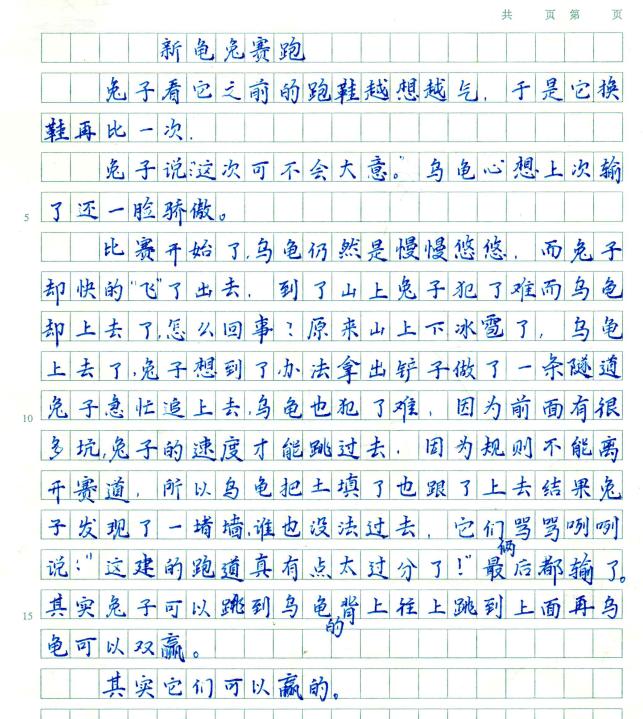 共 页 第 页
新龟兔赛跑
兔子看它之前的跑鞋越想越气，于是它换
鞋再比一次.
兔子说:“这次可不会大意。”乌龟心想上次输
5 了还一脸骄傲。
比赛开始了,乌龟仍然是慢慢悠悠，而兔子
却快的“飞”了出去，到了山上兔子犯了难而乌龟
却上去了,怎么回事？原来山上下冰雹了，乌龟
上去了,兔子想到了办法拿出铲子做了一条隧道
10 兔子急忙追上去,乌龟也犯了难，因为前面有很
多坑,兔子的速度才能跳过去，因为规则不能离
开赛道，所以乌龟把土填了也跟了上去结果兔
子发现了一堵墙,谁也没法过去，它们骂骂咧咧
说：“这建的跑道真有点太过分了!”最后俩都输了。
15 其实兔子可以跳到乌龟的背上往上跳到上面再乌
龟可以双赢。
其实它们可以赢的。